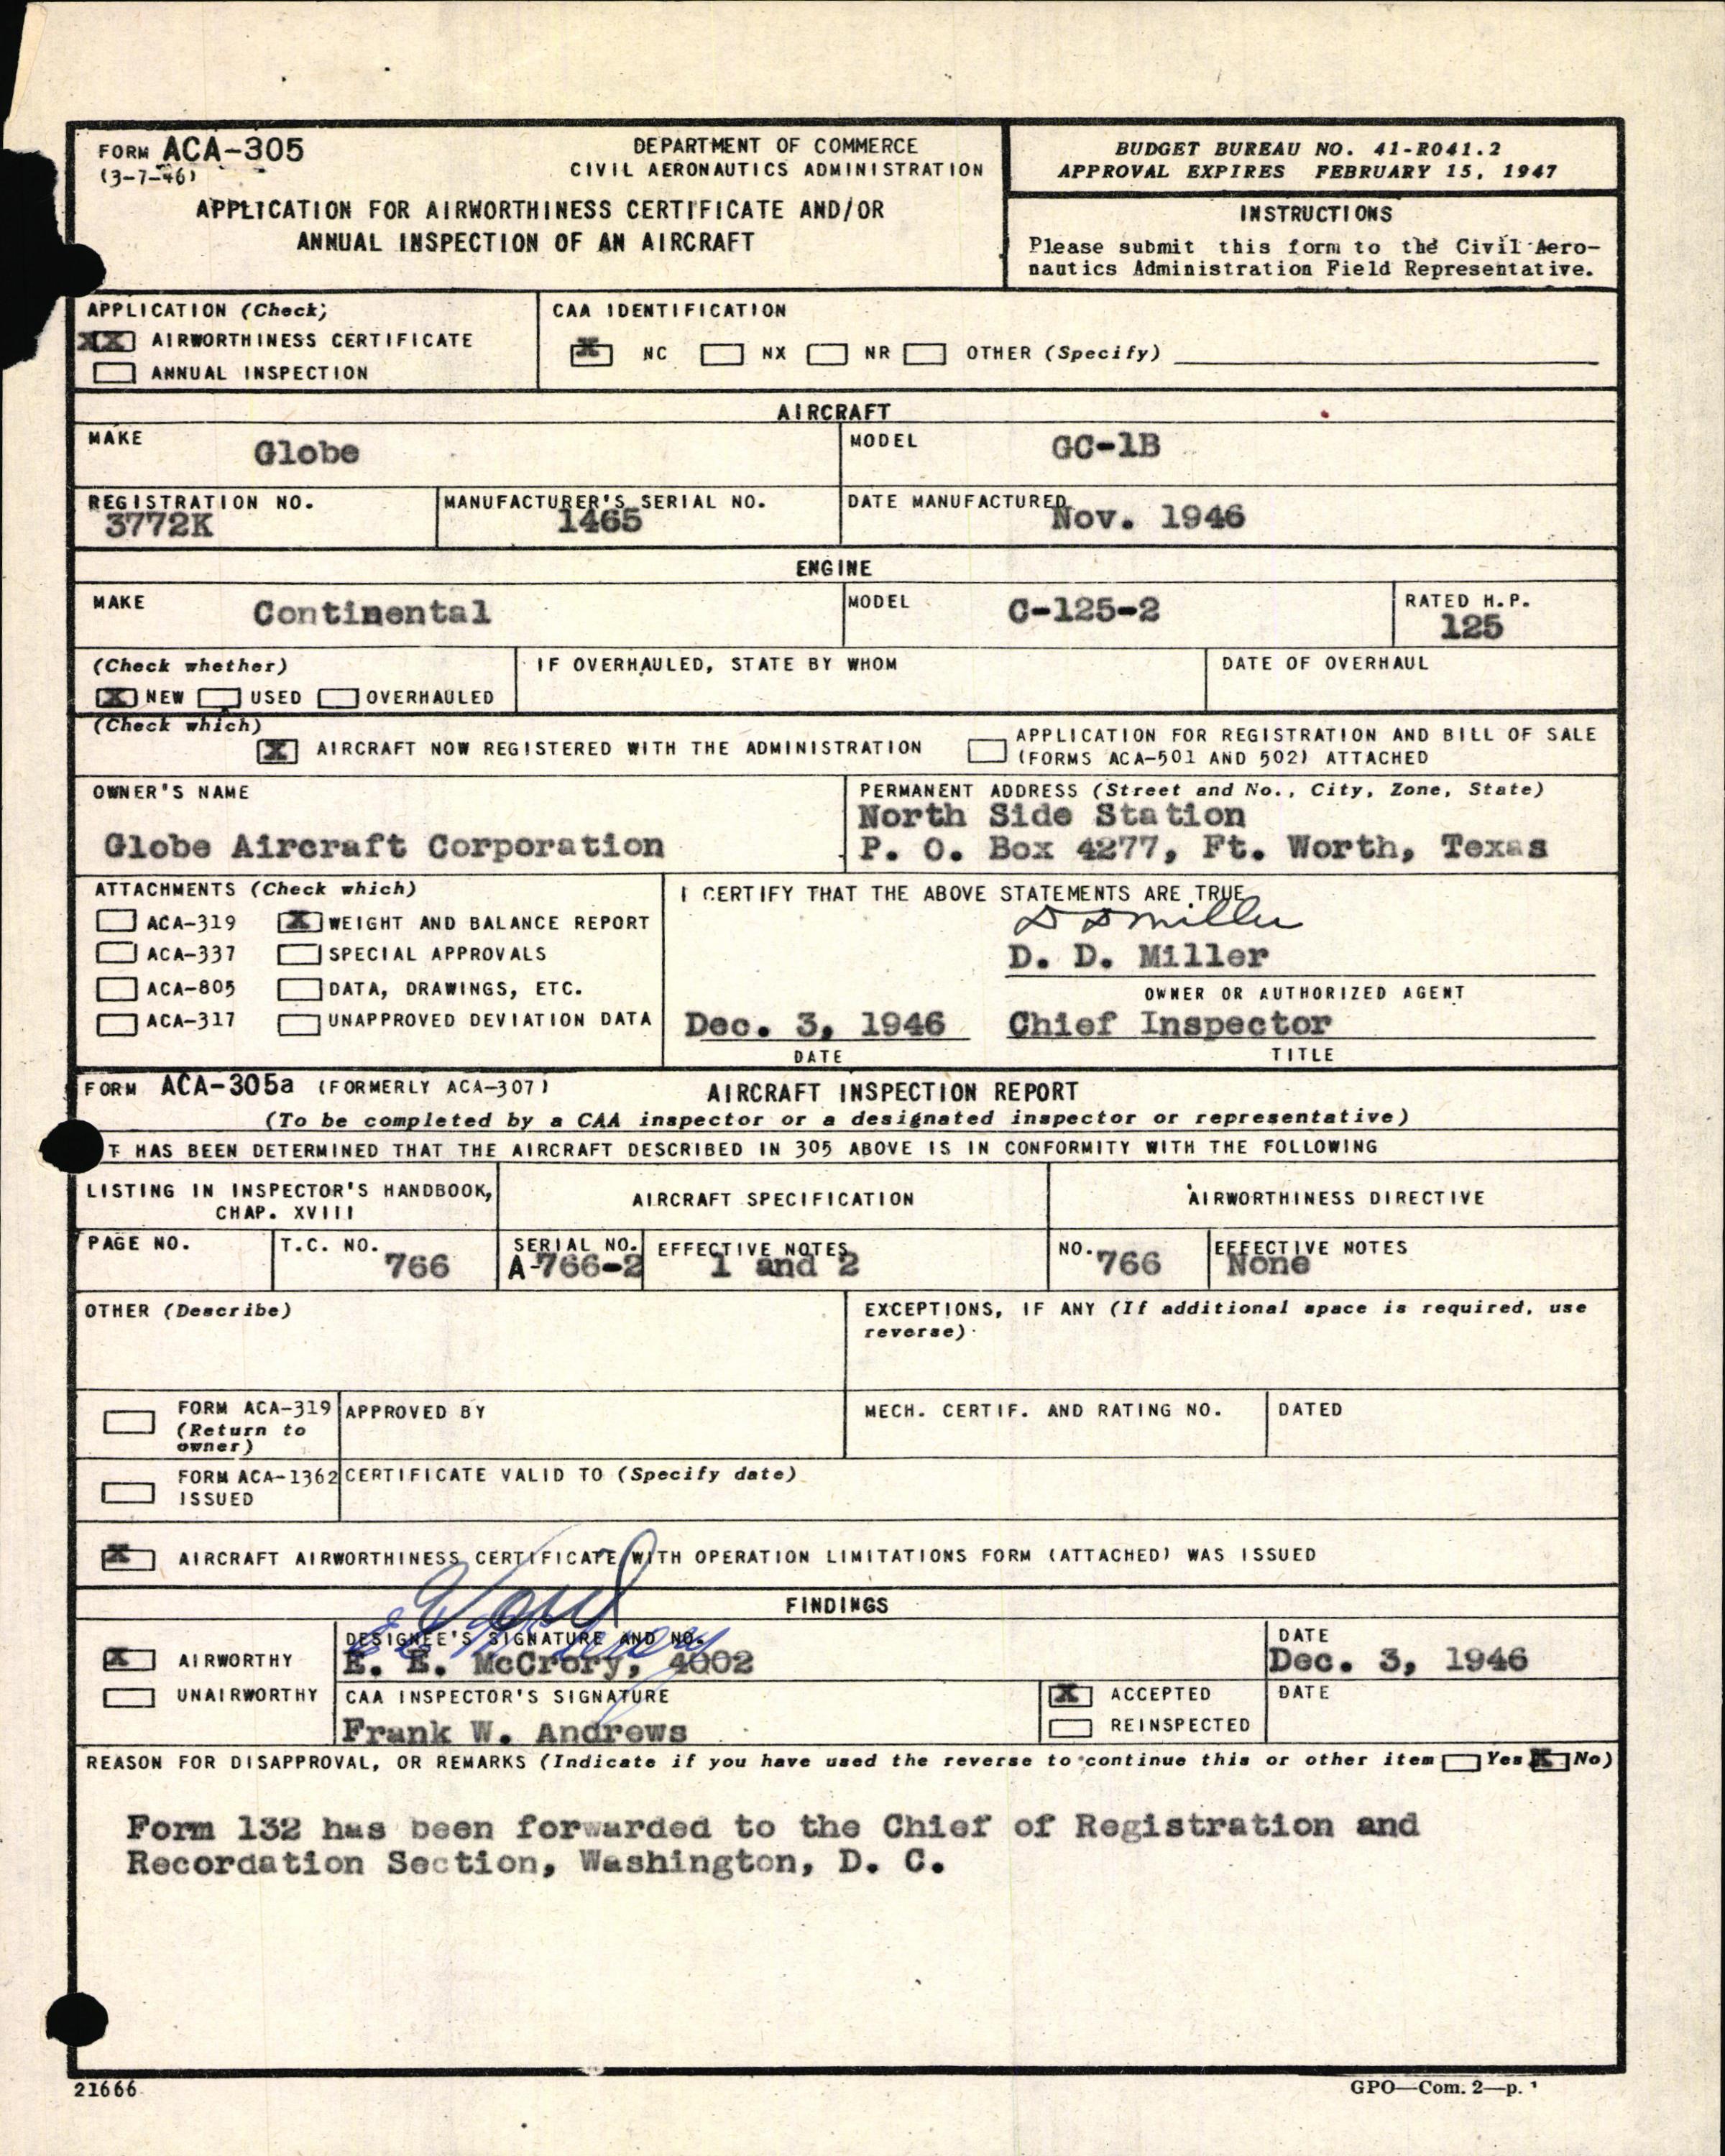 FORM ACA-305
(3-7-46)
DEPARTMENT OF COMMERCE
CIVIL AERONAUTICS ADMINISTRATION
APPLICATION FOR AIRWORTHINESS CERTIFICATE AND/OR
ANNUAL INSPECTION OF AN AIRCRAFT
BUDGET BUREAU NO. 41-R041.2
APPROVAL EXPIRES FEBRUARY 15, 1947
INSTRUCTIONS
Please submit this form to the Civil Aero-
nautics Administration Field Representative.
APPLICATION (Check)
XX AIRWORTHINESS CERTIFICATE
ANNUAL INSPECTION
CAA IDENTIFICATION
X NC NX NR OTHER (Specify)
AIRCRAFT
MAKE
Globe
MODEL
GC-1B
REGISTRATION NO.
3772K
MANUFACTURER'S SERIAL NO.
1465
DATE MANUFACTURED
Nov. 1946
ENGINE
MAKE
Continental
MODEL
C-125-2
RATED H.P.
125
(Check whether)
X NEW USED OVERHAULED
IF OVERHAULED, STATE BY WHOM
DATE OF OVERHAUL
(Check which)
X AIRCRAFT NOW REGISTERED WITH THE ADMINISTRATION
APPLICATION FOR REGISTRATION AND BILL OF SALE
(FORMS ACA-501 AND 502) ATTACHED
OWNER'S NAME
Globe Aircraft Corporation
PERMANENT ADDRESS (Street and No., City, Zone, State)
North Side Station
P. O. Box 4277, Ft. Worth, Texas
ATTACHMENTS (Check which)
ACA-319 X WEIGHT AND BALANCE REPORT
ACA-337 SPECIAL APPROVALS
ACA-805 DATA, DRAWINGS, ETC.
ACA-317 UNAPPROVED DEVIATION DATA
I CERTIFY THAT THE ABOVE STATEMENTS ARE TRUE
D D Miller
D. D. Miller
OWNER OR AUTHORIZED AGENT
Dec. 3, 1946 Chief Inspector
DATE TITLE
FORM ACA-305a (FORMERLY ACA-307) AIRCRAFT INSPECTION REPORT
(To be completed by a CAA inspector or a designated inspector or representative)
T HAS BEEN DETERMINED THAT THE AIRCRAFT DESCRIBED IN 305 ABOVE IS IN CONFORMITY WITH THE FOLLOWING
LISTING IN INSPECTOR'S HANDBOOK,
CHAP. XVIII
AIRCRAFT SPECIFICATION
AIRWORTHINESS DIRECTIVE
PAGE NO.
T.C. NO.
766
SERIAL NO.
A-766-2
EFFECTIVE NOTES
1 and 2
NO. 766
EFFECTIVE NOTES
None
OTHER (Describe)
EXCEPTIONS, IF ANY (If additional space is required, use
reverse)
FORM ACA-319
(Return to
owner)
APPROVED BY
MECH. CERTIF. AND RATING NO.
DATED
FORM ACA-1362
ISSUED
CERTIFICATE VALID TO (Specify date)
X AIRCRAFT AIRWORTHINESS CERTIFICATE WITH OPERATION LIMITATIONS FORM (ATTACHED) WAS ISSUED
FINDINGS
X AIRWORTHY
UNAIRWORTHY
DESIGNEE'S SIGNATURE AND NO.
E E McCrory
E. E. McCrory, 4002
DATE
Dec. 3, 1946
CAA INSPECTOR'S SIGNATURE
Frank W. Andrews
X ACCEPTED
REINSPECTED
DATE
REASON FOR DISAPPROVAL, OR REMARKS (Indicate if you have used the reverse to continue this or other item Yes X No)
Form 132 has been forwarded to the Chief of Registration and
Recordation Section, Washington, D. C.
21666
GPO—Com. 2—p.